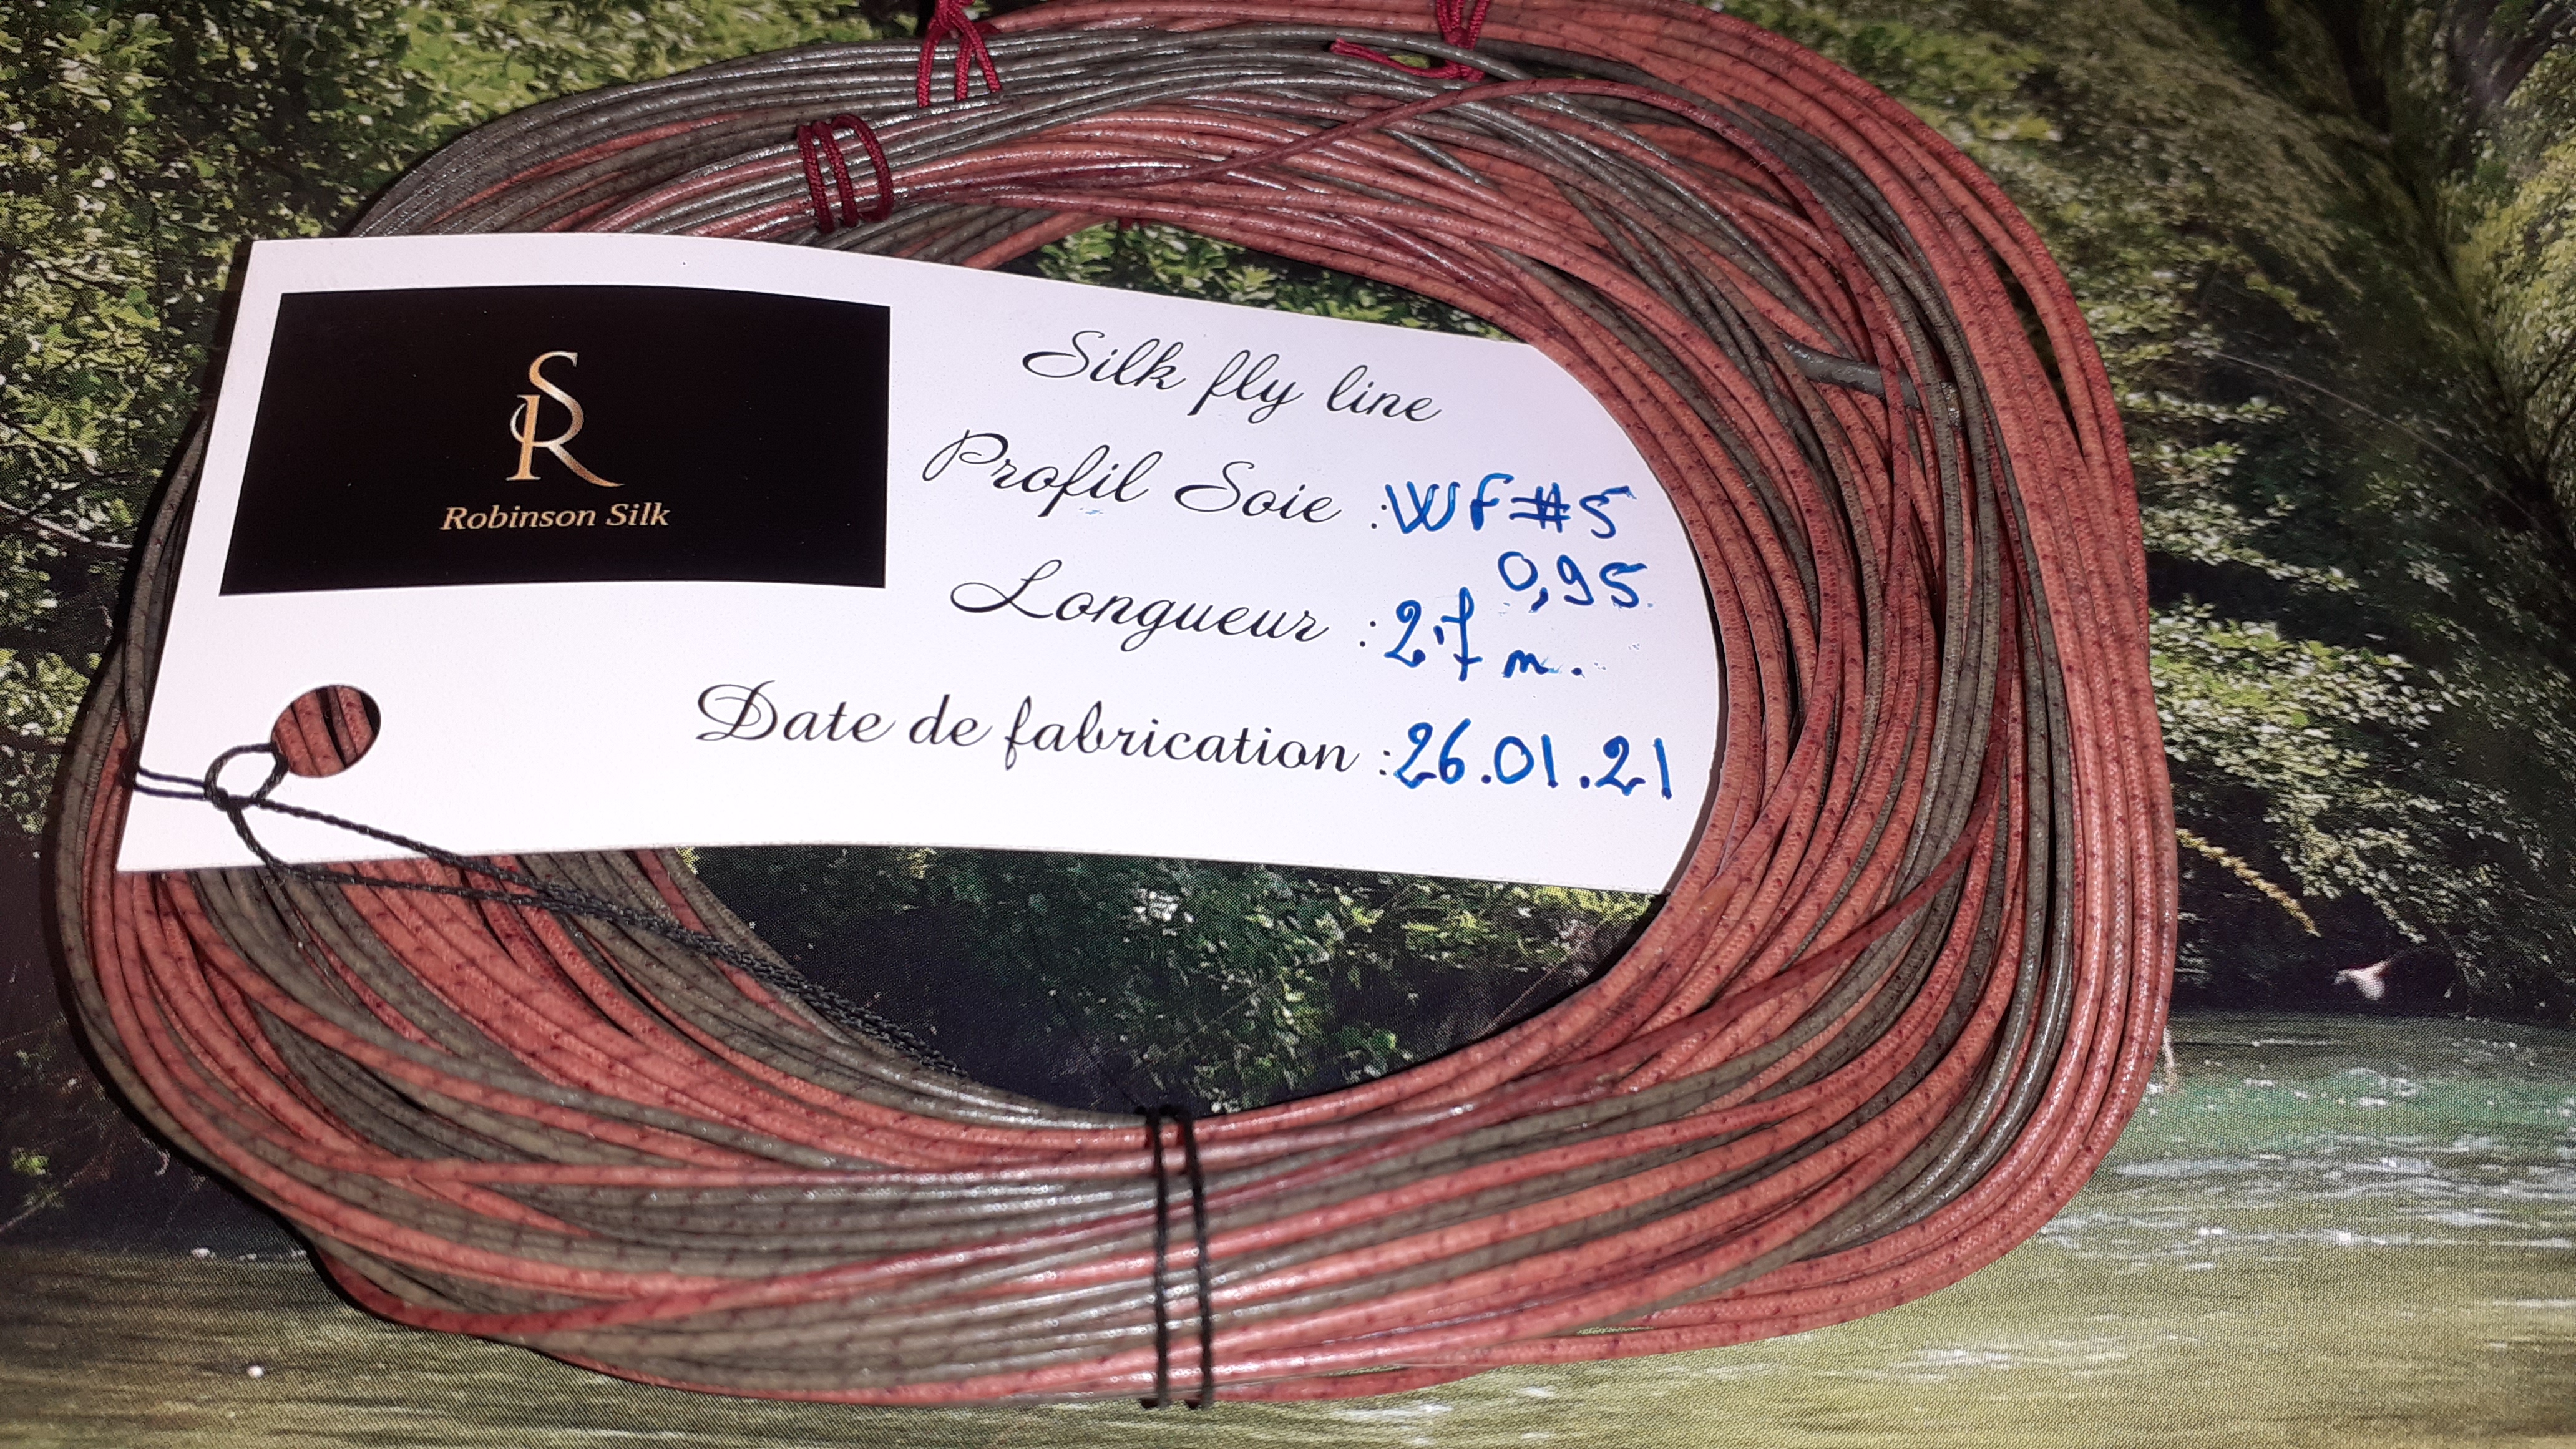 SR
Robinson Silk
Silk fly line
Profil Soie : WF#5
0,95
Longueur : 27 m.
Date de fabrication : 26.01.21